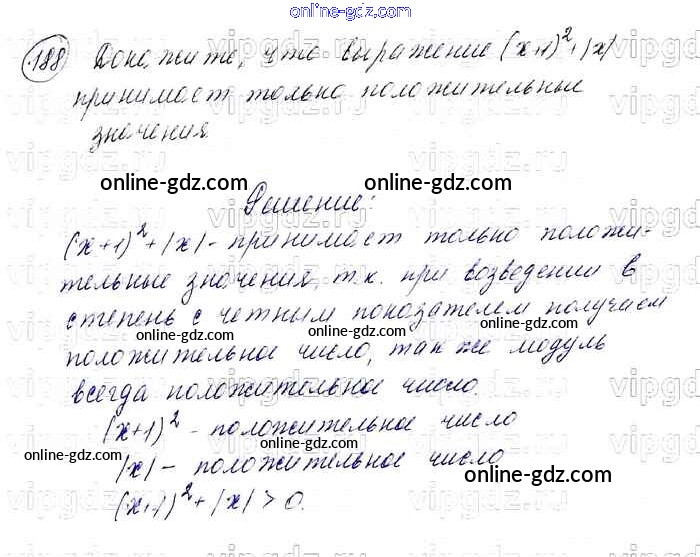 online-gdz.com
188 Докажите, что выражение (x+1)²+|x|
принимает только положительные
значения.
online-gdz.com
online-gdz.com
Решение:
(x+1)²+|x| - принимает только положи-
тельные значения, т.к. при возведении в
степень с четным показателем получаем
online-gdz.com
online-gdz.com
положительное число, так же модуль
всегда положительное число.
online-gdz.com
(x+1)² - положительное число
online-gdz.com
|x| - положительное число
online-gdz.com
(x+1)²+|x|>0.
online-gdz.com